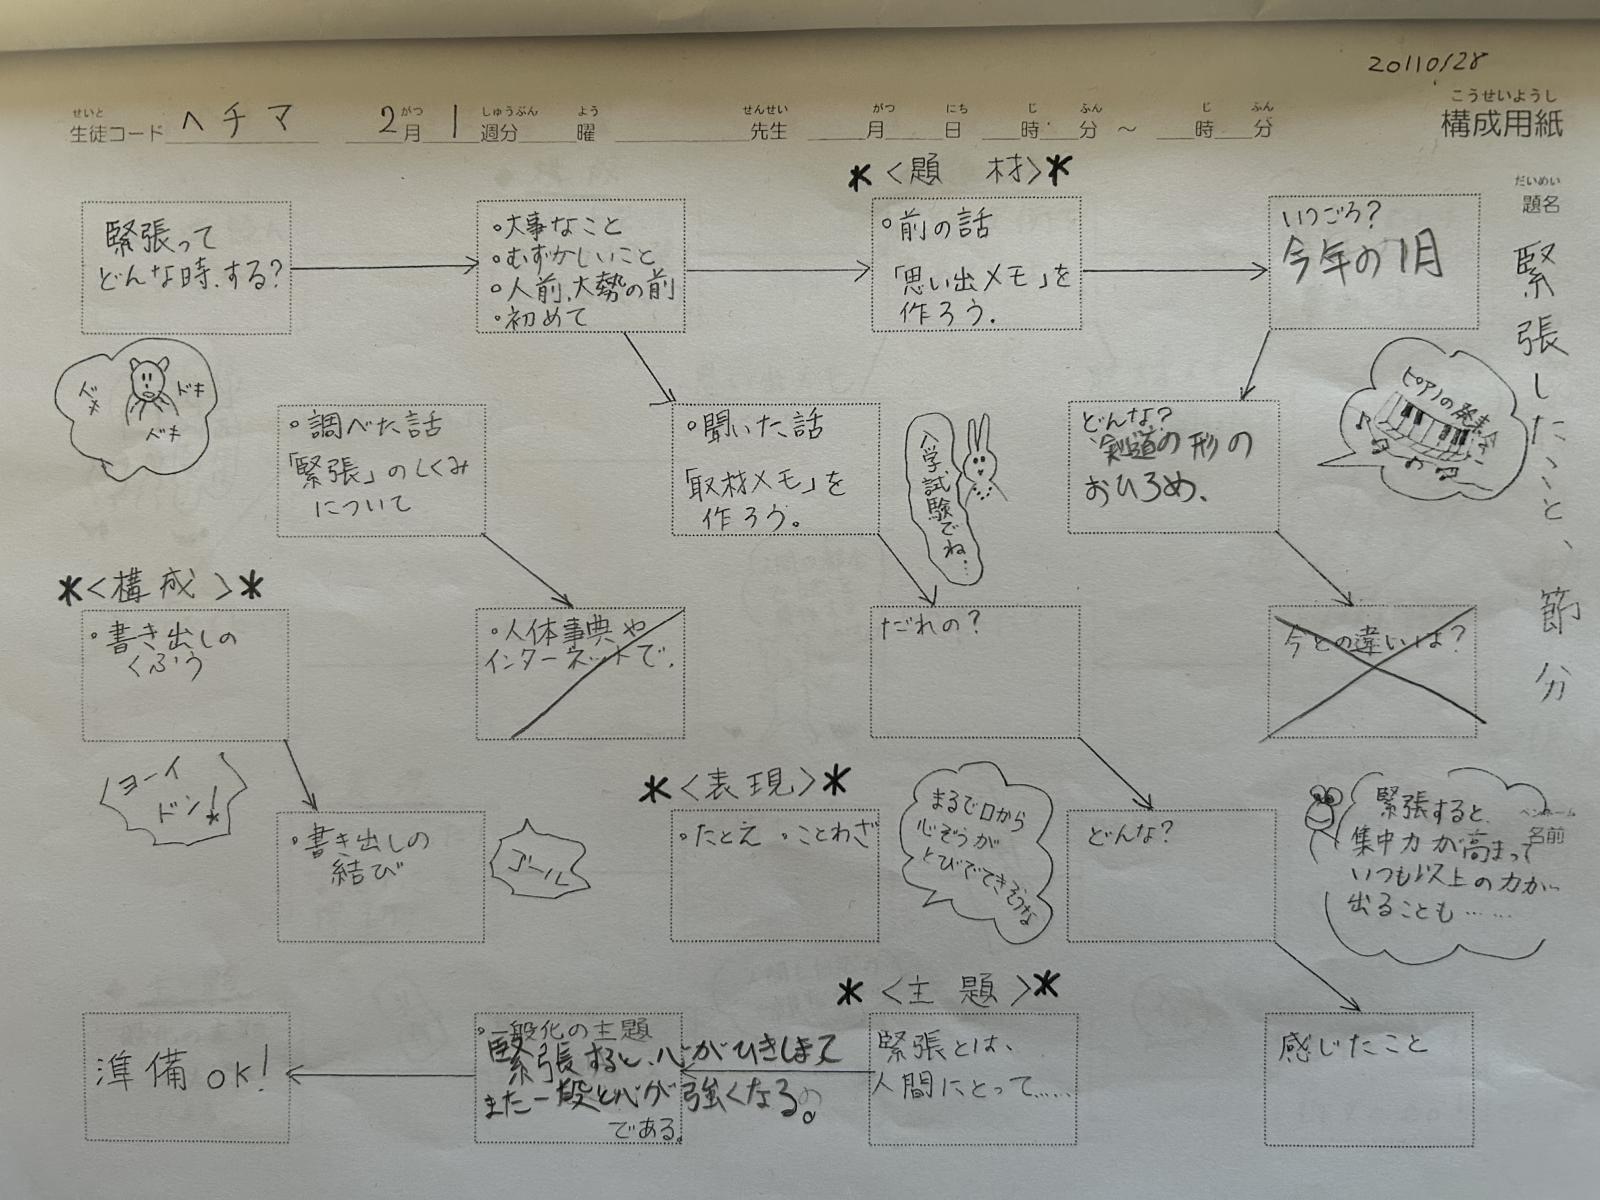 2011 0/28
せいと がつ しゅうぶん よう せんせい がつ にち じ ふん じ ふん
生徒コード ヘチマ 2月 1週分 曜 先生 月 日 時 分 ～ 時 分
こうせいようし
構成用紙
だいめい
題名
緊張したこと、節分
ペンネーム
名前
＊＜題 材＞＊
緊張って
どんな時、する？
・大事なこと
・むずかしいこと
・人前、大勢の前
・初めて
・前の話
「思い出メモ」を
作ろう.
いつごろ？
今年の1月
ドキ
ドキ
ドキ
・調べた話
「緊張」のしくみ
について
・聞いた話
「取材メモ」を
作ろう。
入学試験でね…
どんな？
剣道の形の
おひろめ、
ピアノの発表会
＊＜構成＞＊
・書き出しの
くふう
・人体事典や
インターネットで.
だれの？
今との違いは？
ヨーイ
ドン！
・書き出しの
結び
ゴール
＊＜表現＞＊
・たとえ ・ことわざ
まるで口から
心ぞうが
とびでてきそうな
どんな？
緊張すると、
集中力が高まって
いつも以上の力が
出ることも……
＊＜主題＞＊
準備OK！
・一般化の主題
緊張すると、心がひきしまて
また一段と心が強くなるの。
である。
緊張とは、
人間にとって……
感じたこと